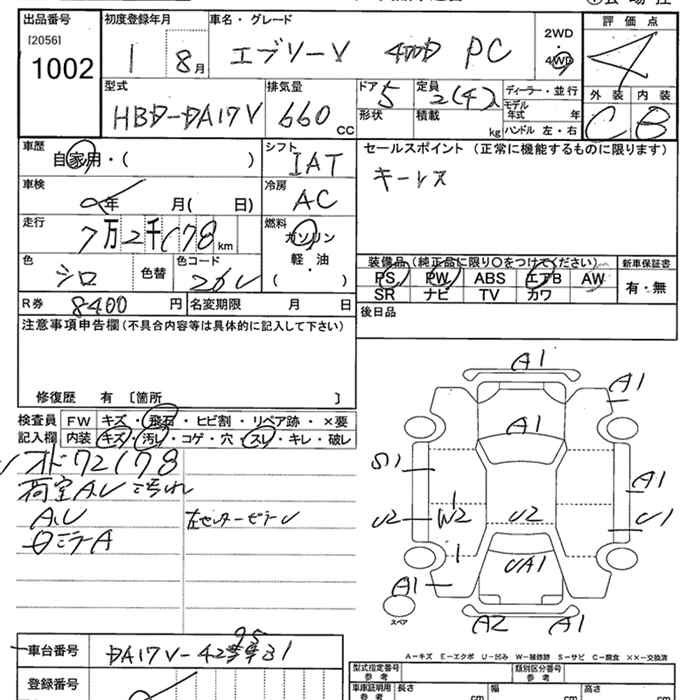 出品番号
[2056]
1002
初度登録年月
1 8月
車名・グレード
エブリーV 4WD PC
2WD
4WD
評価点
4
外装 内装
C B
型式
HBD-DA17V
排気量
660 cc
ドア 5
形状
定員 2(4)人
積載 kg
ディーラー・並行
モデル年式 年
ハンドル 左・右
車歴
自家用・( )
シフト
IAT
セールスポイント(正常に機能するものに限ります)
キーレス
車検
年 月( 日)
冷房
AC
走行
7万2千178km
燃料
ガソリン
軽・油
( )
色
シロ
色替
色コード
26U
装備品(純正品に限り〇をつけてください)
新車保証書
PS PW ABS エアB AW
SR ナビ TV カワ
有・無
R券 8400円
名変期限 月 日
後日品
注意事項申告欄(不具合内容等は具体的に記入して下さい)
修復歴 有 [箇所 ]
検査員記入欄
FW キズ・飛石・ヒビ割・リペア跡・×要
内装 キズ・汚レ・コゲ・穴・スレ・キレ・破レ
オド72178
荷室A.U 汚れ
A.U
左センターピラーU
A1
A1
A1
S1
A1
U2 W2 U2 U1
UA1
A1
A2 A1
スペア
A-キズ E-エクボ U-凹み W-補修跡 S-サビ C-腐食 XX-交換済
車台番号
DA17V-
登録番号
型式指定番号
参考
類別区分番号
参考
車庫証明用
参考
長さ cm
幅 cm
高さ cm